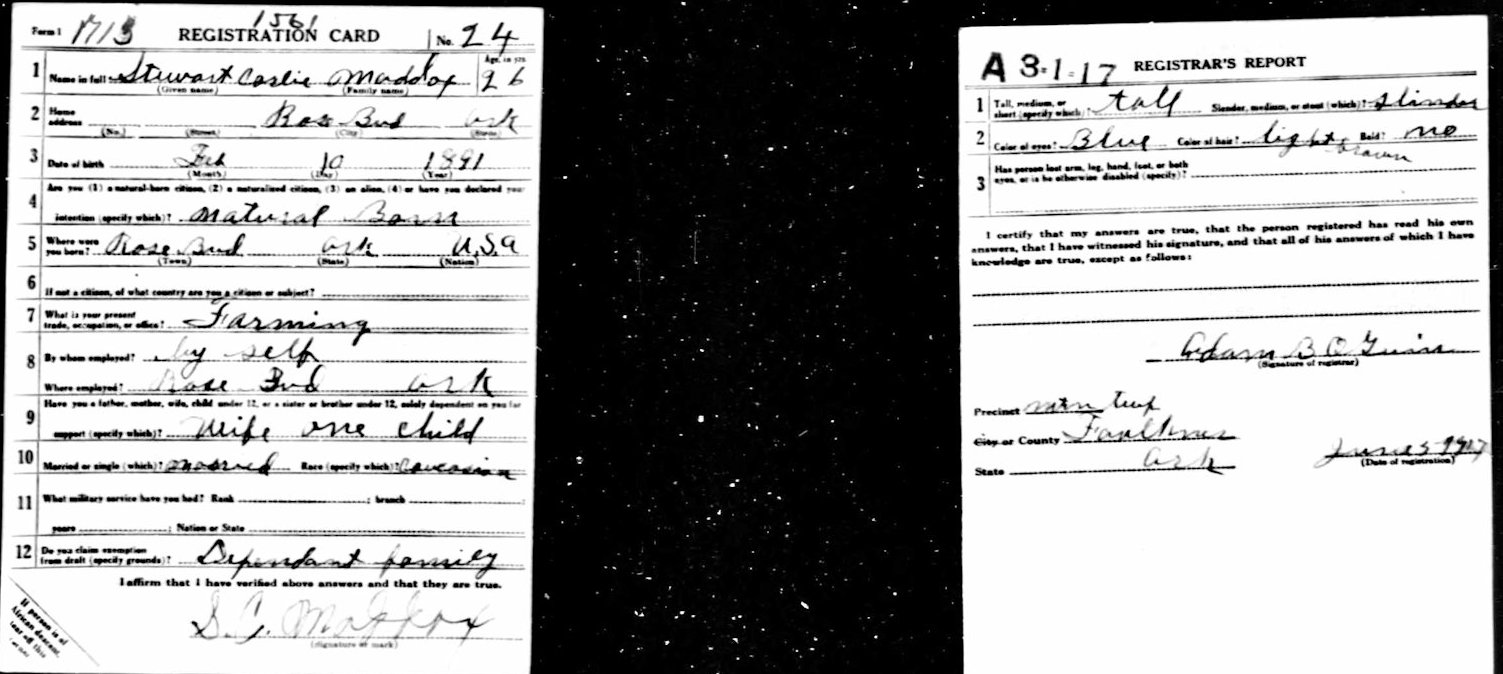 Form 1 1713 1561 REGISTRATION CARD No. 24
1 Name in full Stewart Caslie Maddox Age, in yrs. 26
(Given name) (Family name)
2 Home address Rose Bud Ark
(No.) (Street) (City) (State)
3 Date of birth Feb 10 1891
(Month) (Day) (Year)
Are you (1) a natural-born citizen, (2) a naturalized citizen, (3) an alien, (4) or have you declared your
4 intention (specify which)? Natural Born
5 Where were you born? Rose Bud Ark U.S.A
(Town) (State) (Nation)
6 If not a citizen, of what country are you a citizen or subject?
7 What is your present trade, occupation, or office? Farming
8 By whom employed? by self
Where employed? Rose Bud Ark
Have you a father, mother, wife, child under 12, or a sister or brother under 12, solely dependent on you for
9 support (specify which)? Wife one child
10 Married or single (which)? married Race (specify which)? Caucasian
11 What military service have you had? Rank ; branch ;
years ; Nation or State
12 Do you claim exemption from draft (specify grounds)? Dependant family
I affirm that I have verified above answers and that they are true.
S. C. Maddox
(Signature or mark)
If person is of
African descent,
tear off this
A 3-1-17 REGISTRAR'S REPORT
1 Tall, medium, or short (specify which)? tall Slender, medium, or stout (which)? Slinder
2 Color of eyes? Blue Color of hair? light brown Bald? no
3 Has person lost arm, leg, hand, foot, or both eyes, or is he otherwise disabled (specify)?
I certify that my answers are true, that the person registered has read his own
answers, that I have witnessed his signature, and that all of his answers of which I have
knowledge are true, except as follows:
Adam B O Guinn
(Signature of registrar)
Precinct Mtn twp
City or County Faulkner
State Ark June 5 1917
(Date of registration)